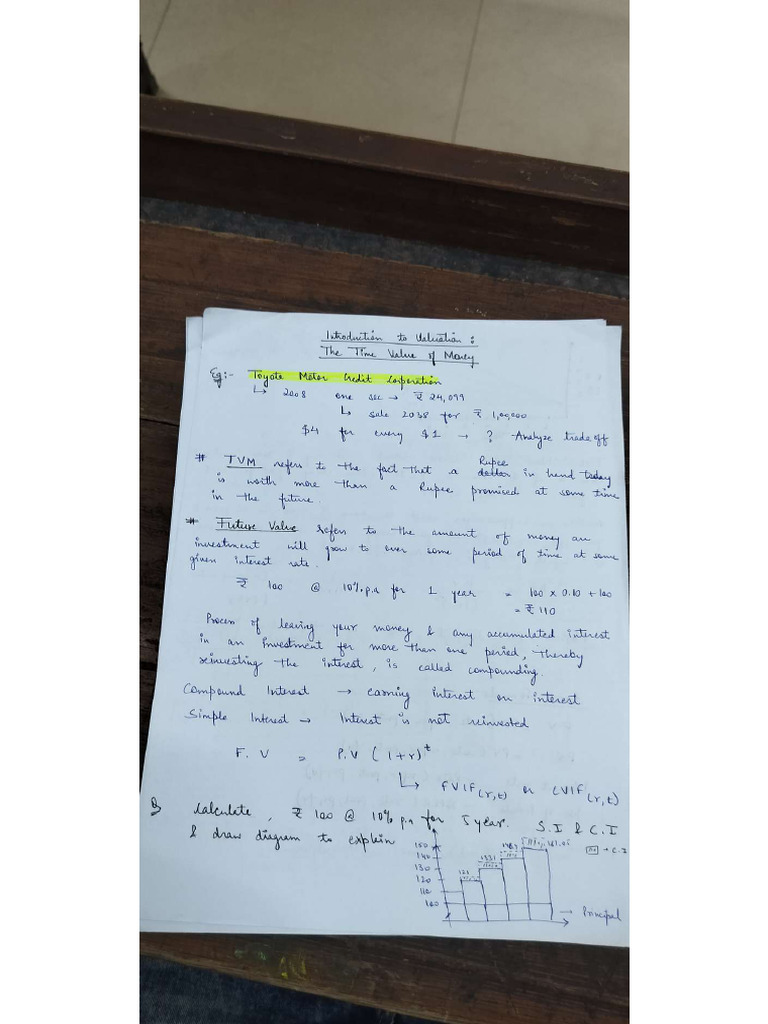 Introduction to Valuation :
The Time Value of Money
Eg:- Toyota Motor Credit Corporation
↳ 2008 one sec → ₹ 24,099
↳ sale 2038 for ₹ 1,00,000
$4 for every $1 → ? Analyze trade off
# TVM refers to the fact that a Rupee dollar in hand today
is worth more than a Rupee promised at some time
in the future.
# Future Value refers to the amount of money an
investment will grow to over some period of time at some
given interest rate.
₹ 100 @ 10% p.a for 1 year = 100 x 0.10 + 100
= ₹ 110
Process of leaving your money & any accumulated interest
in an investment for more than one period, thereby
reinvesting the interest, is called compounding.
Compound Interest → earning interest on interest
Simple Interest → Interest is not reinvested
F. V = P.V (1+r)^t
↳ FVIF(r,t) or CVIF(r,t)
Q calculate, ₹ 100 @ 10% p.a for 5 year. S.I & C.I
& draw diagram to explain
150
140
130
120
110
100
121
→ C.I
→ Principal